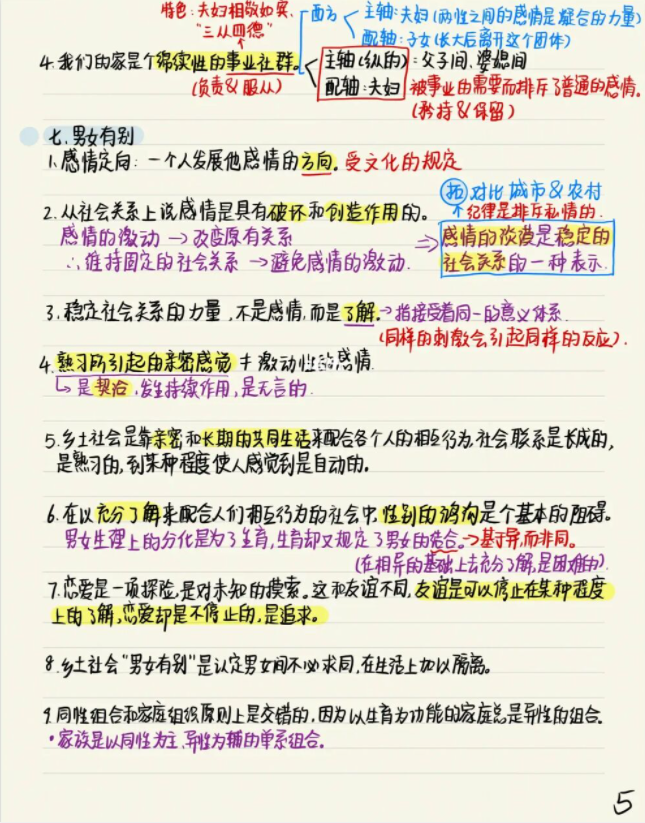 特色：夫妇相敬如宾、
"三从四德"
西方
主轴：夫妇(两性之间的感情是凝合的力量)
配轴：子女(长大后离开这个团体)
4.我们的家是个绵续性的事业社群。
(负责&服从)
主轴(纵的)：父子间、婆媳间
配轴：夫妇
被事业的需要而排斥了普通的感情。
(矜持&保留)
七、男女有别
1.感情定向：一个人发展他感情的方向。受文化的规定
拓 对比城市&农村
纪律是排斥私情的.
2.从社会关系上说感情是具有破坏和创造作用的。
感情的激动→改变原有关系
∴维持固定的社会关系→避免感情的激动.
⇒感情的淡漠是稳定的
社会关系的一种表示.
3.稳定社会关系的力量,不是感情,而是了解.→指接受着同一的意义体系.
(同样的刺激会引起同样的反应).
4.熟习所引起的亲密感觉≠激动性的感情.
↳是契洽,发生持续作用,是无言的.
5.乡土社会是靠亲密和长期的共同生活来配合各个人的相互行为,社会联系是长成的,
是熟习的,到某种程度使人感觉到是自动的。
6.在以充分了解来配合人们相互行为的社会中,性别的鸿沟是个基本的阻碍。
男女生理上的分化是为了生育,生育却又规定了男女的结合.→基于异,而非同。
(在相异的基础上去充分了解,是困难的).
7.恋爱是一项探险,是对未知的摸索。这和友谊不同,友谊是可以停止在某种程度
上的了解,恋爱却是不停止的,是追求。
8.乡土社会"男女有别"是认定男女间不必求同,在生活上加以隔离。
9.同性组合和家庭组织原则上是交错的,因为以生育为功能的家庭总是异性的组合。
·家族是以同性为主、异性为辅的单系组合。
5